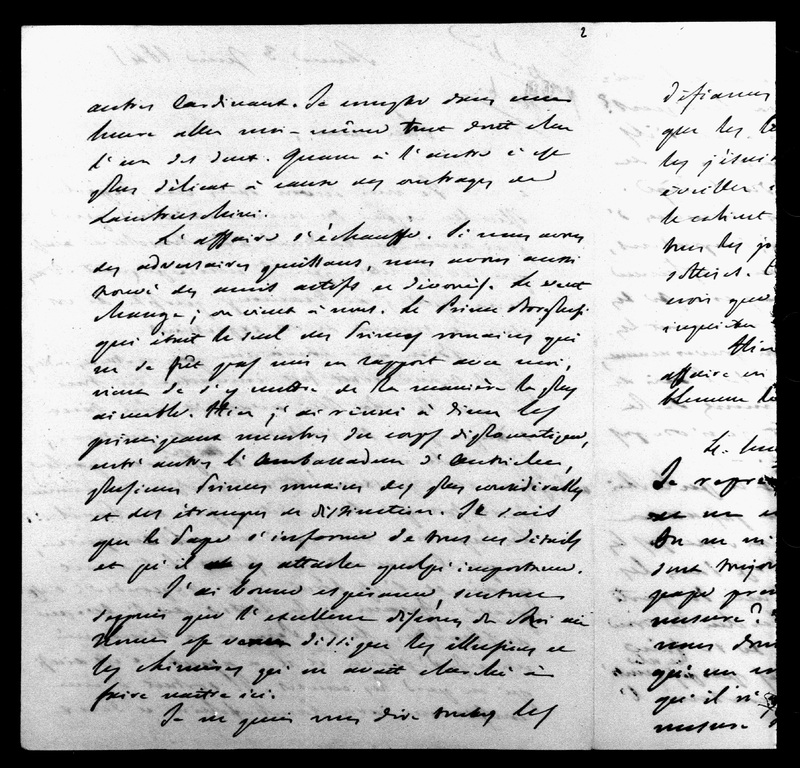 2
autres Cardinaux. Je compte dans une
heure aller moi-même tout droit chez
l'un des deux. Quant à l'autre c'est
plus délicat à cause des outrages de
Lambruschini.
L'affaire s'échauffe. Si nous avons
des adversaires puissans, nous avons aussi
trouvé des amis actifs et dévoués. Le vent
change; on vient à nous. Le Prince Borghese
qui était le seul des Princes romains qui
ne se fût pas mis en rapport avec moi,
vient de s'y mettre de la manière la plus
aimable. Hier j'ai réuni à diner les
principaux membres du corps diplomatique,
entre autres l'ambassadeur d'Autriche,
plusieurs Princes romains des plus considérables
et des étrangers de distinction. Je sais
que le Pape s'informe de tous ces détails
et qu'il y attache quelqu'importance.
J'ai bonne espérance, surtout
depuis que l'excellent discours du Roi
est venu dissiper les illusions et
les chimères qu'on avait cherché à
faire naître ici.
Je ne puis vous dire toutes les
défiances
que les
les jésui
éveiller
le cabinet
tous les
sottises.
crois que
inquiéter
Hier
affaire en
blement
Le
Je
On ne
sont toujou
pape pren
mesure?
vous
qu'un
qu'il n'
mesure